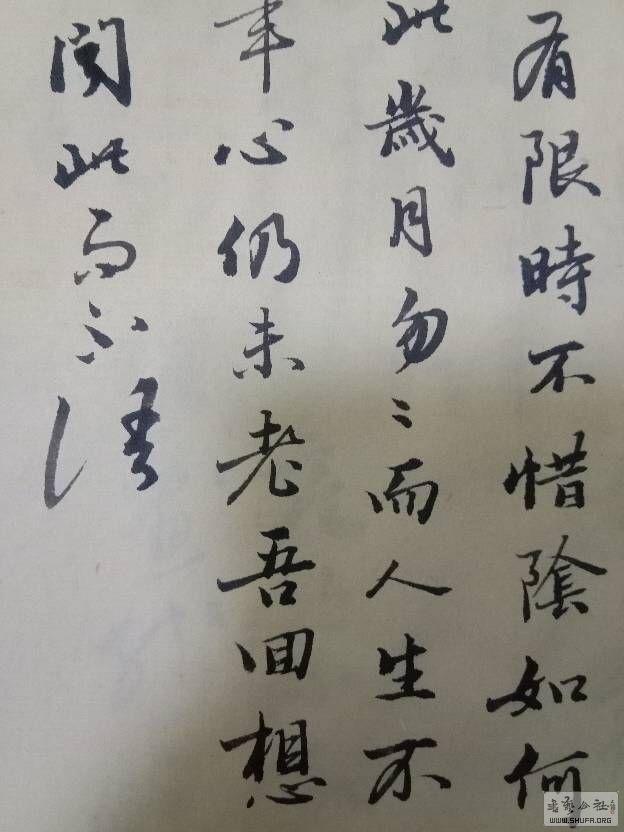 有限時不惜陰如何
此歲月匆〻而人生不
年心仍未老吾回想
閱此而不
WWW.SHUFA.ORG